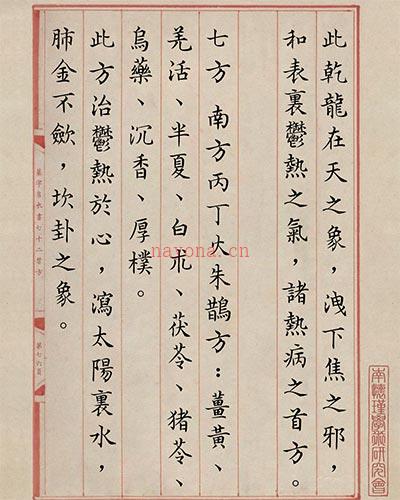 此乾龍在天之象，洩下焦之邪，
和表裏鬱熱之氣，諸熱病之首方。
七方 南方丙丁火朱鵲方：薑黃、
羌活、半夏、白朮、茯苓、猪苓、
烏藥、沉香、厚樸。
此方治鬱熱於心，瀉太陽裏水，
肺金不歛，坎卦之象。
第七六頁
南懷瑾學術研究會
nayona.cn